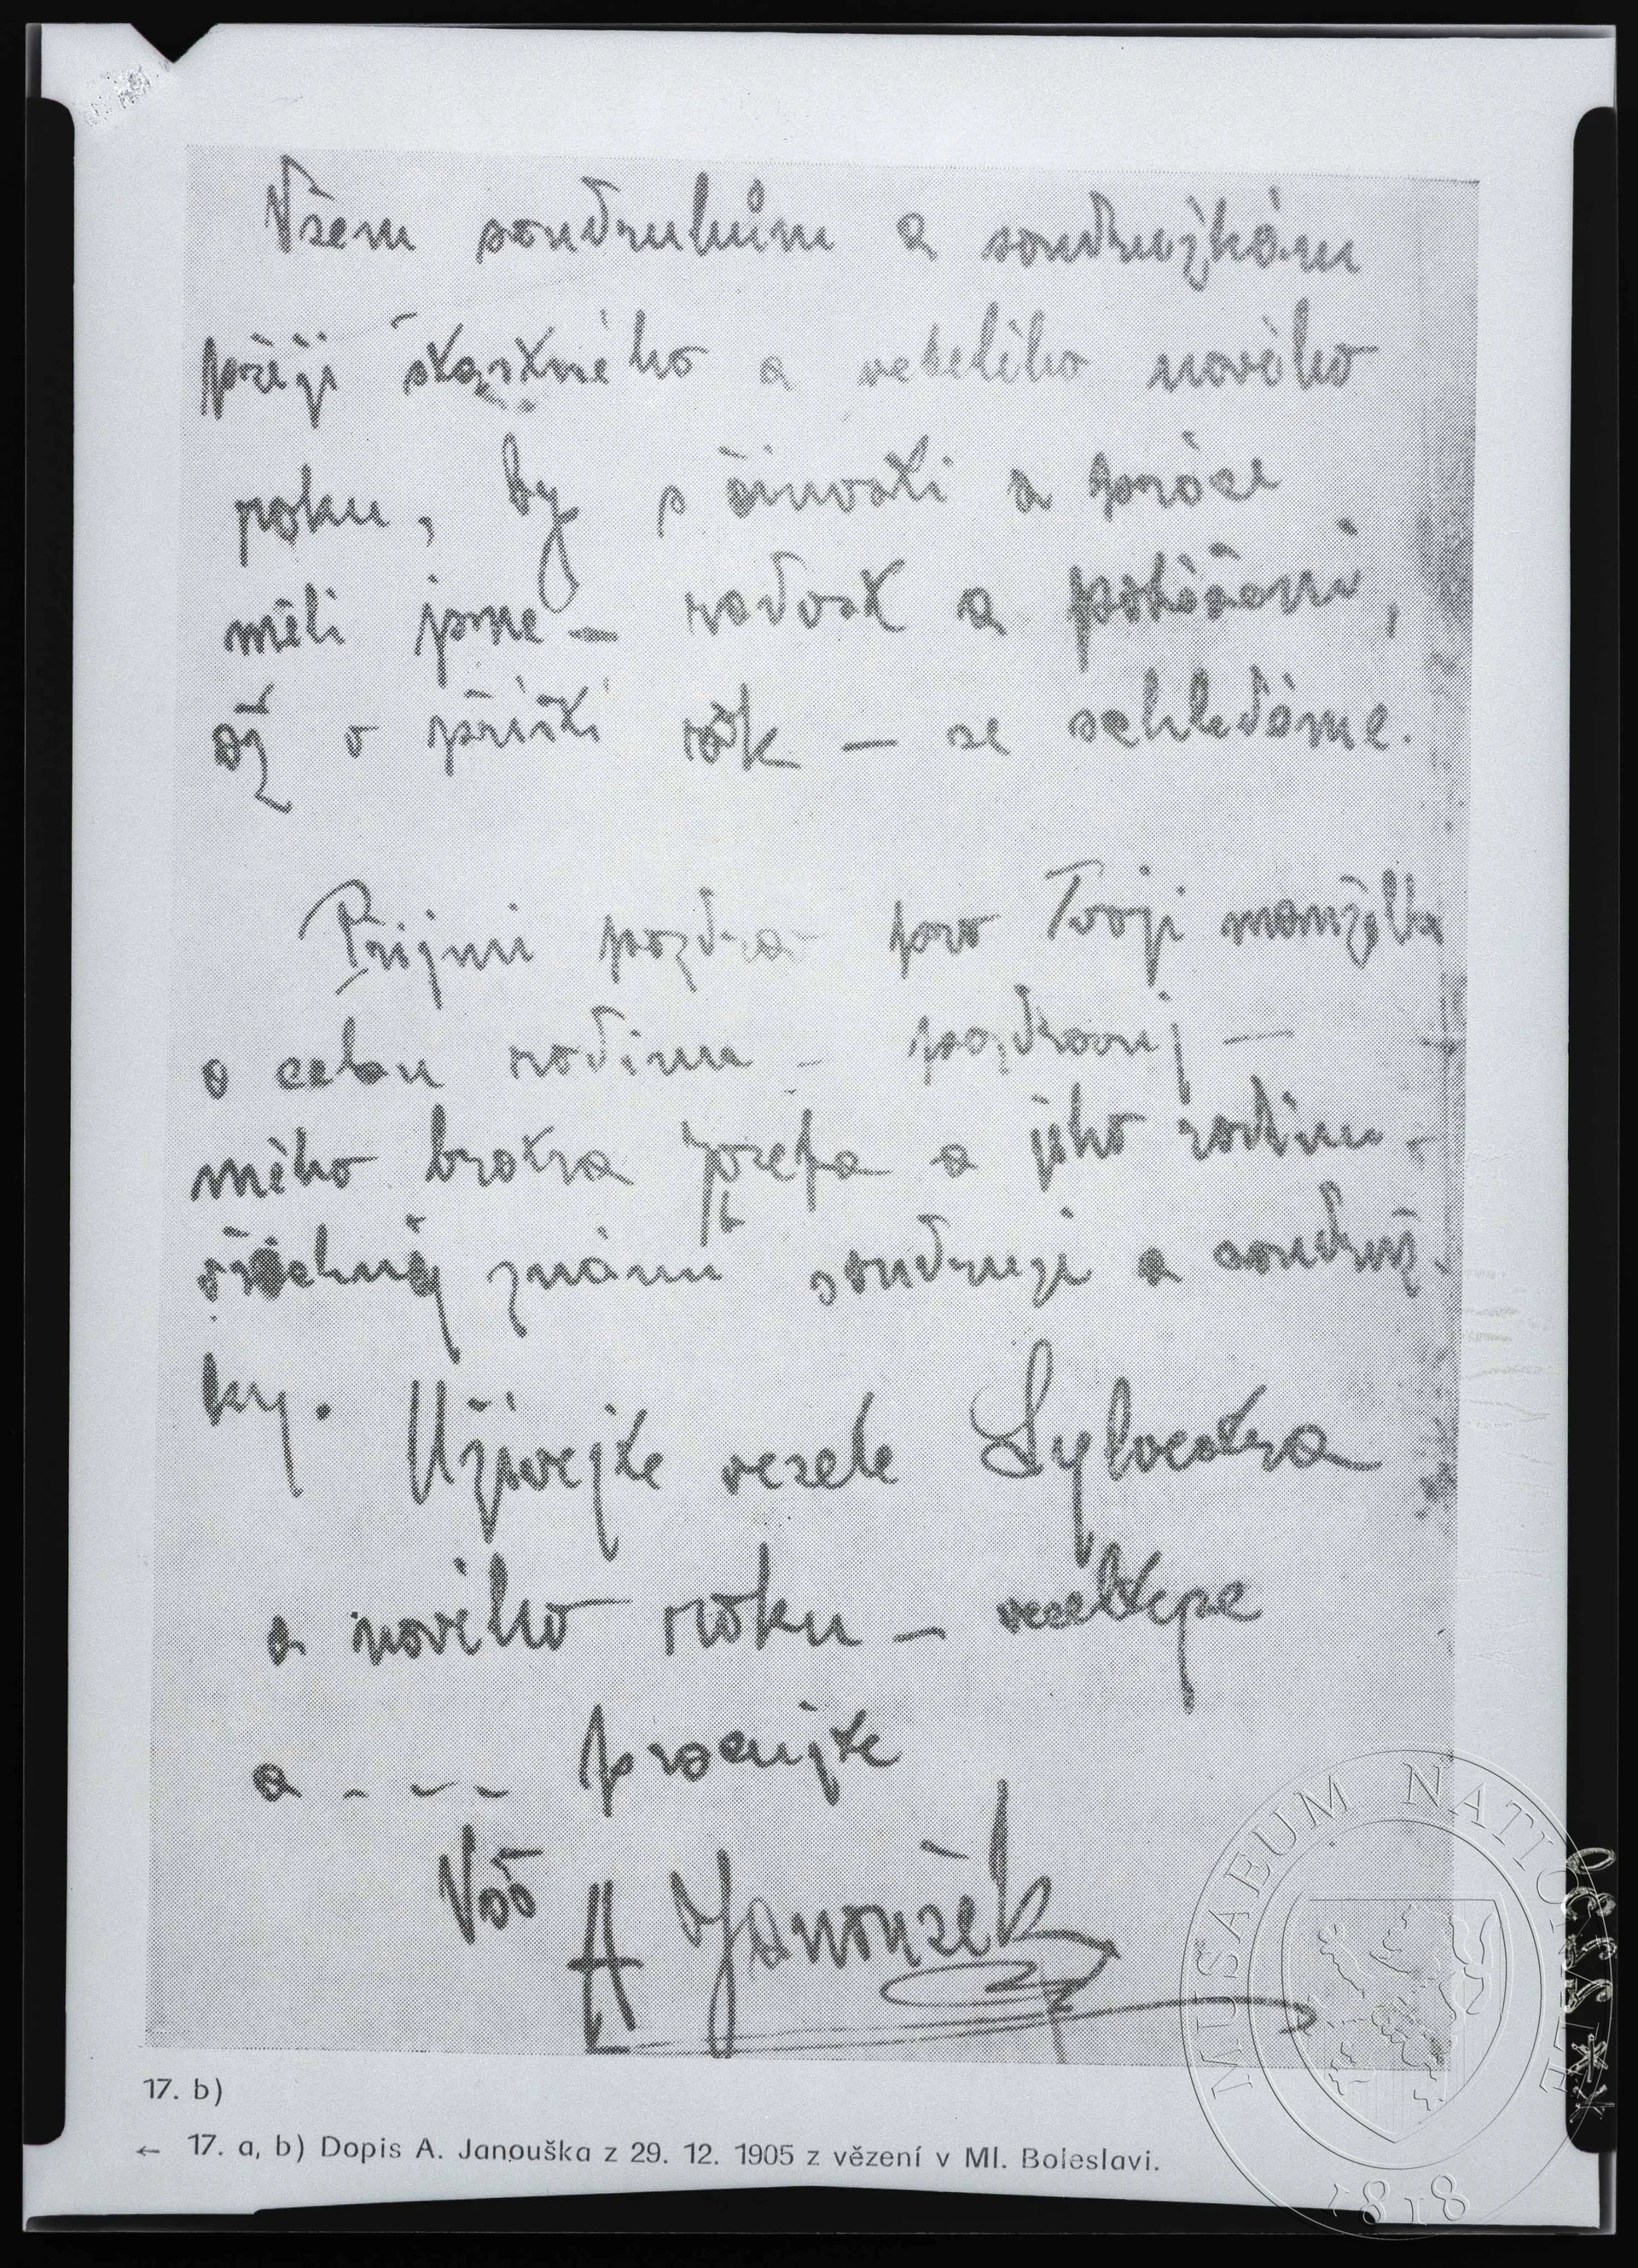 Všem soudruhům a soudružkám
přeji šťastného a veselého nového
roku, by s činnosti a práce
měli jsme — radost a potěšení,
až v příští rok — se shledáme.
Přijmi pozdrav pro Tvoji manželku
a celou rodinu — pozdravuj —
mého bratra Josefa a jeho rodinu -
všechny známé soudruhy a soudruž-
ky. Užívejte vesele Sylvestra
a nového roku — veselte se
a - - - pracujte
Váš
A Janoušek
17. b)
← 17. a, b) Dopis A. Janouška z 29. 12. 1905 z vězení v Ml. Boleslavi.
MUSAEUM NATIONALE
1818